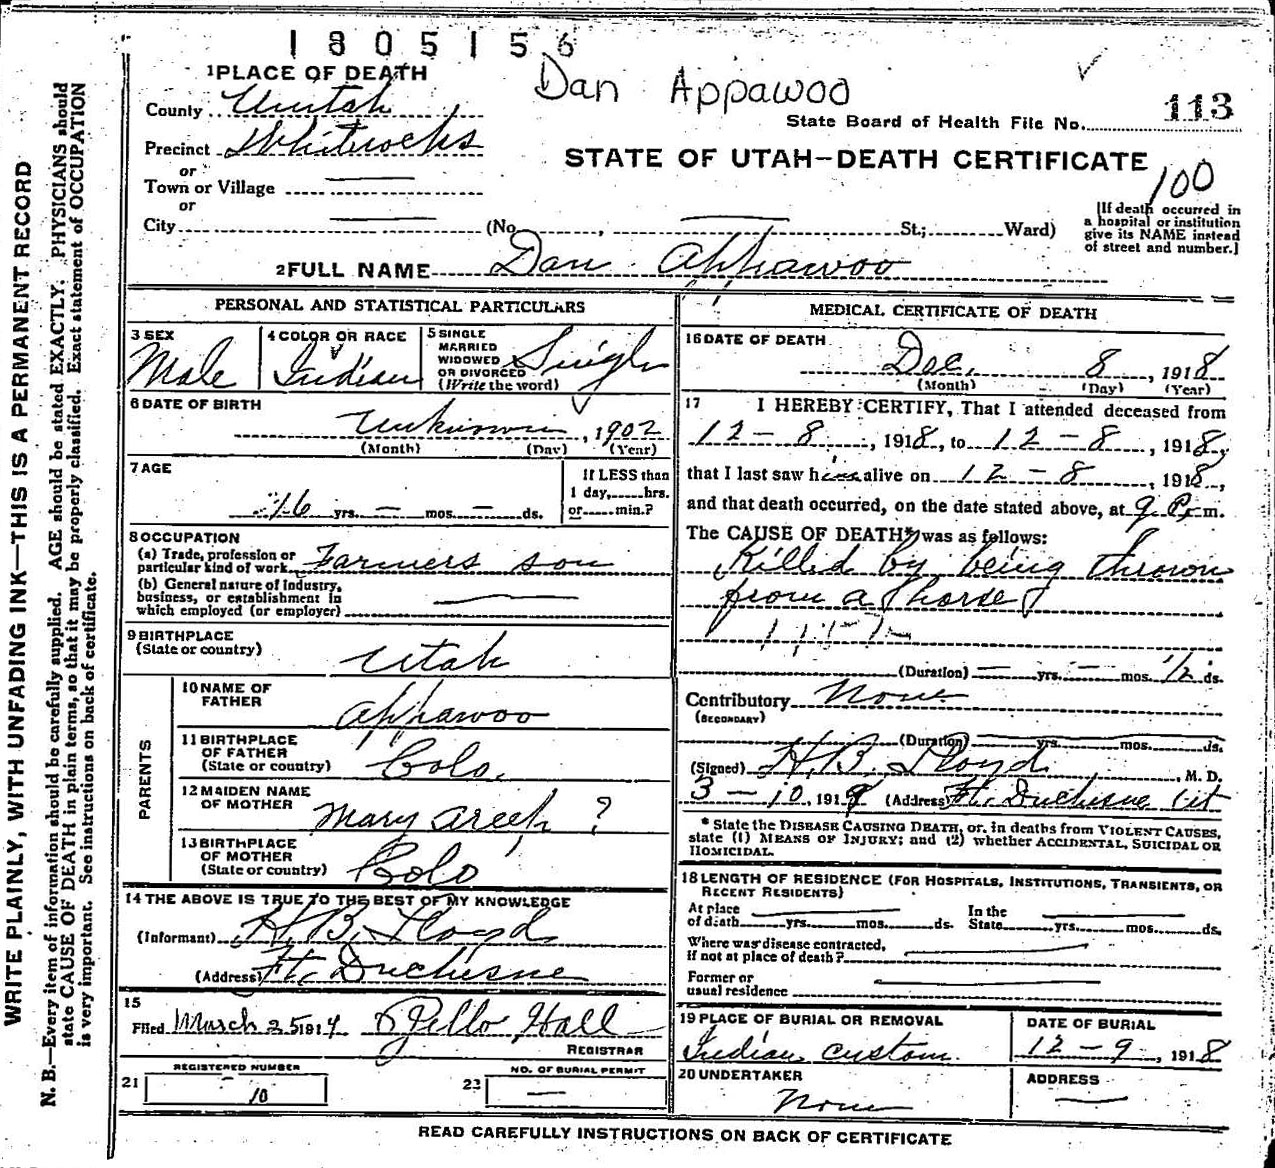 1805156
Dan Appawoo
1 PLACE OF DEATH
County Uintah
Precinct Whiterocks
or
Town or Village
or
City
(No. St.; Ward)
State Board of Health File No. 113
STATE OF UTAH—DEATH CERTIFICATE
100
[If death occurred in
a hospital or institution
give its NAME instead
of street and number.]
2 FULL NAME Dan Appawoo
PERSONAL AND STATISTICAL PARTICULARS
3 SEX
Male
4 COLOR OR RACE
Indian
5 SINGLE
MARRIED
WIDOWED
OR DIVORCED
(Write the word)
Single
6 DATE OF BIRTH
Unknown, 1902
(Month) (Day) (Year)
7 AGE
16 yrs. — mos. — ds.
If LESS than
1 day, hrs.
or min.?
8 OCCUPATION
(a) Trade, profession or
particular kind of work Farmers son
(b) General nature of industry,
business, or establishment in
which employed (or employer)
9 BIRTHPLACE
(State or country)
Utah
PARENTS
10 NAME OF
FATHER
Appawoo
11 BIRTHPLACE
OF FATHER
(State or country)
Colo.
12 MAIDEN NAME
OF MOTHER
Mary Areep ?
13 BIRTHPLACE
OF MOTHER
(State or country)
Colo
14 THE ABOVE IS TRUE TO THE BEST OF MY KNOWLEDGE
(Informant) H. B. Lloyd
(Address) Ft. Duchesne
15
Filed March 25 1919 Hall
REGISTRAR
REGISTERED NUMBER
21 10
NO. OF BURIAL PERMIT
22 —
MEDICAL CERTIFICATE OF DEATH
16 DATE OF DEATH
Dec. 8, 1918
(Month) (Day) (Year)
17 I HEREBY CERTIFY, That I attended deceased from
12-8, 1918, to 12-8, 1918,
that I last saw him alive on 12-8, 1918,
and that death occurred, on the date stated above, at 9 P. m.
The CAUSE OF DEATH* was as follows:
Killed by being thrown
from a horse
(Duration) — yrs. — mos. 1/2 ds.
Contributory None
(SECONDARY)
(Duration) yrs. mos. ds.
(Signed) H. B. Lloyd, M. D.
3-10, 1919 (Address) Ft. Duchesne Ut
* State the DISEASE CAUSING DEATH, or, in deaths from VIOLENT CAUSES,
state (1) MEANS OF INJURY; and (2) whether ACCIDENTAL, SUICIDAL OR
HOMICIDAL.
18 LENGTH OF RESIDENCE (FOR HOSPITALS, INSTITUTIONS, TRANSIENTS, OR
RECENT RESIDENTS)
At place
of death yrs. mos. ds.
In the
State yrs. mos. ds.
Where was disease contracted,
if not at place of death?
Former or
usual residence
19 PLACE OF BURIAL OR REMOVAL
Indian custom.
DATE OF BURIAL
12-9, 1918
20 UNDERTAKER
None
ADDRESS
—
READ CAREFULLY INSTRUCTIONS ON BACK OF CERTIFICATE
WRITE PLAINLY, WITH UNFADING INK—THIS IS A PERMANENT RECORD
N. B.—Every item of information should be carefully supplied. AGE should be stated EXACTLY. PHYSICIANS should
state CAUSE OF DEATH in plain terms, so that it may be properly classified. Exact statement of OCCUPATION
is very important. See instructions on back of certificate.